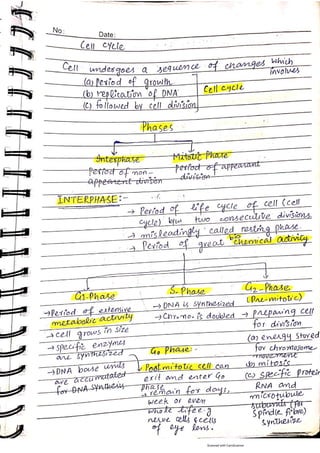 No:
Date:
Cell cycle
Cell undergoes a sequence of changes which
involves
(a) Period of growth
(b) replication of DNA
(c) followed by cell division
Cell cycle
Phases
Interphase
Period of non-
apparent division
Mitotic Phase
Period of appearant
division
INTERPHASE:-
→ Period of life cycle of cell (cell
cycle) b/w two consecutive divisions.
→ misleadingly called resting phase
→ Period of great bio chemical activity
G1-Phase
→Period of extensive
metabolic activity
→cell grows in size
→specific enzymes
are synthesized
→DNA base units
are accumulated
for DNA synthesis
S-Phase
→DNA is synthesized
→Chr. no. is doubled
G2-Phase
(Pre-mitotic)
→ preparing cell
for division
(a) energy stored
for chromosome
movement
(b) mitosis
(c) specific protein
RNA and
microtubule
subunits (for
spindle fibre)
synthesize
G0 Phase:-
Post mitotic cell can
exit and enter G0
phase
→remain for days,
week or even
whole life e.g
nerve cells & cells
of eye lens.
Scanned with CamScanner